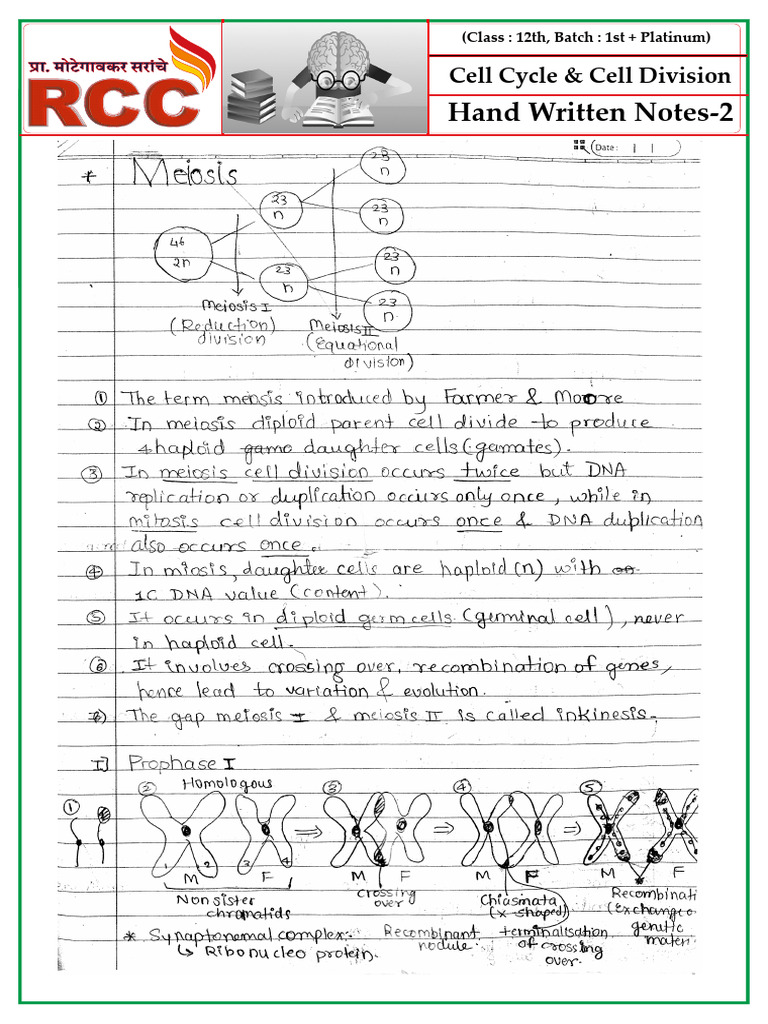 प्रा. मोटेगावकर सरांचे
RCC
(Class : 12th, Batch : 1st + Platinum)
Cell Cycle & Cell Division
Hand Written Notes-2
Date :
* Meiosis
23
n
23
n
23
n
46
2n
23
n
23
n
23
n
Meiosis I
(Reduction)
division
Meiosis II
(Equational
division)
① The term meosis introduced by Farmer & Moore
② In meiosis diploid parent cell divide to produce
4 haploid gamo daughter cells (gamates).
③ In meiosis cell division occurs twice but DNA
replication or duplication occurs only once, while in
mitosis cell division occurs once & DNA duplication
also occurs once.
④ In miosis, daughter cells are haploid (n) with
1C DNA value (content).
⑤ It occurs in diploid germ cells (germinal cell), never
in haploid cell.
⑥ It involves crossing over, recombination of genes,
hence lead to variation & evolution.
⑦ The gap meiosis I & meiosis II is called inkinesis.
I] Prophase I
① ② Homologous ③ ④ ⑤
1 2 3 4
M F M F M F M F
Non sister
chromatids
crossing
over
Chiasmata
(X shaped)
Recombinati
(Exchange o
genetic
mater
* Synaptonemal complex:-
↳ Ribonucleo protein.
Recombinant
nodule.
terminalisation
of crossing
over.